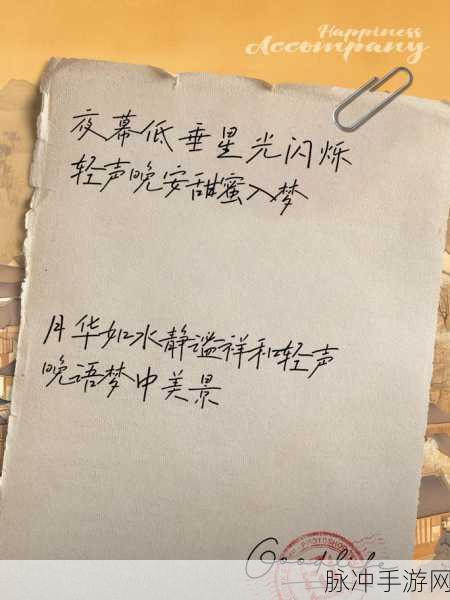 Happiness
Accompany
夜幕低垂星光闪烁
轻声晚安甜蜜入梦
月华如水静谧祥和轻声
晚语梦中美景
PHOTOSHOP
Good life
脉冲手游网